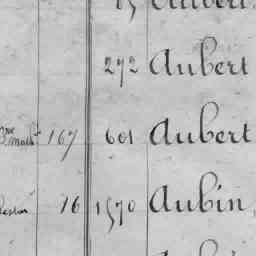 Aubert
272 Aubert
167 601 Aubert
76 1570 Aubin